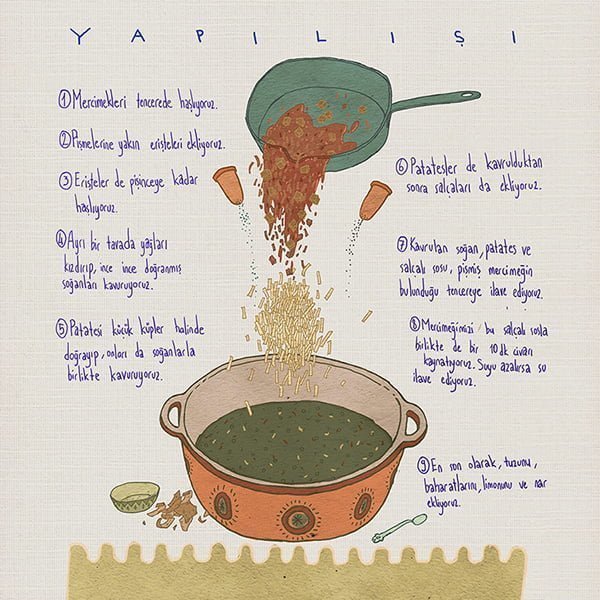 YAPILIŞI
① Mercimekleri tencerede haşlıyoruz.
② Pişmelerine yakın erişteleri ekliyoruz.
③ Erişteler de pişinceye kadar
haşlıyoruz.
④ Ayrı bir tavada yağları
kızdırıp, ince ince doğranmış
soğanları kavuruyoruz.
⑤ Patatesi küçük küpler halinde
doğrayıp, onları da soğanlarla
birlikte kavuruyoruz.
⑥ Patatesler de kavrulduktan
sonra salçaları da ekliyoruz.
⑦ Kavrulan soğan, patates ve
salçalı sosu, pişmiş mercimeğin
bulunduğu tencereye ilave ediyoruz.
⑧ Mercimeğimizi bu salçalı sosla
birlikte de bir 10 dk civarı
kaynatıyoruz. Suyu azalırsa su
ilave ediyoruz.
⑨ En son olarak, tuzunu,
baharatlarını, limonunu ve nar
ekliyoruz.